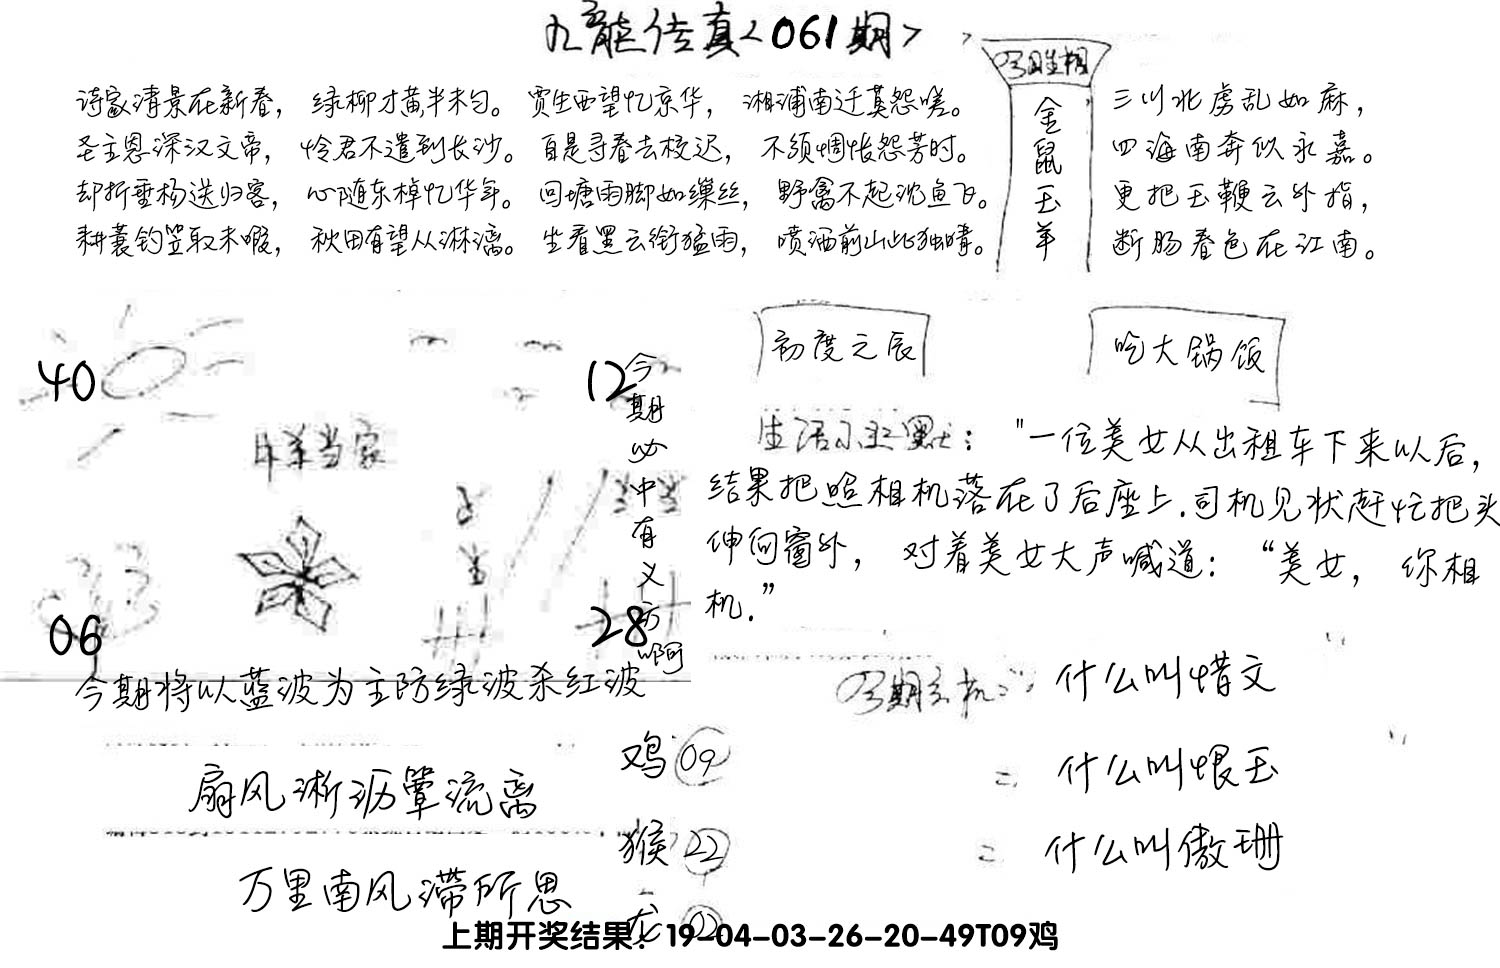 九龙传真<061期>
诗家清景在新春， 绿柳才黄半未匀。 贾生西望忆京华， 湘浦南迁莫怨嗟。
圣主恩深汉文帝， 怜君不遣到长沙。 自是寻春去校迟， 不须惆怅怨芳时。
却折垂杨送归客， 心随东棹忆华年。 回塘雨脚如缫丝， 野禽不起沈鱼飞。
耕蓑钓笠取未暇， 秋田有望从淋漓。 坐看黑云衔猛雨， 喷洒前山此独晴。
今日生相
金鼠玉羊
三川北虏乱如麻，
四海南奔似永嘉。
更把玉鞭云外指，
断肠春色在江南。
40
12
牛羊当家
06
28
今期必中有义方啊
今期将以蓝波为主防绿波杀红波
初度之辰
吃大锅饭
生活小幽默： "一位美女从出租车下来以后，
结果把照相机落在了后座上.司机见状赶忙把头
伸向窗外， 对着美女大声喊道： “美女， 你相
机.”
今期玄机: 什么叫惜文
= 什么叫恨玉
= 什么叫傲珊
扇风淅沥簟流离
万里南风滞所思
鸡 09
猴 22
龙 02
上期开奖结果：19-04-03-26-20-49T09鸡